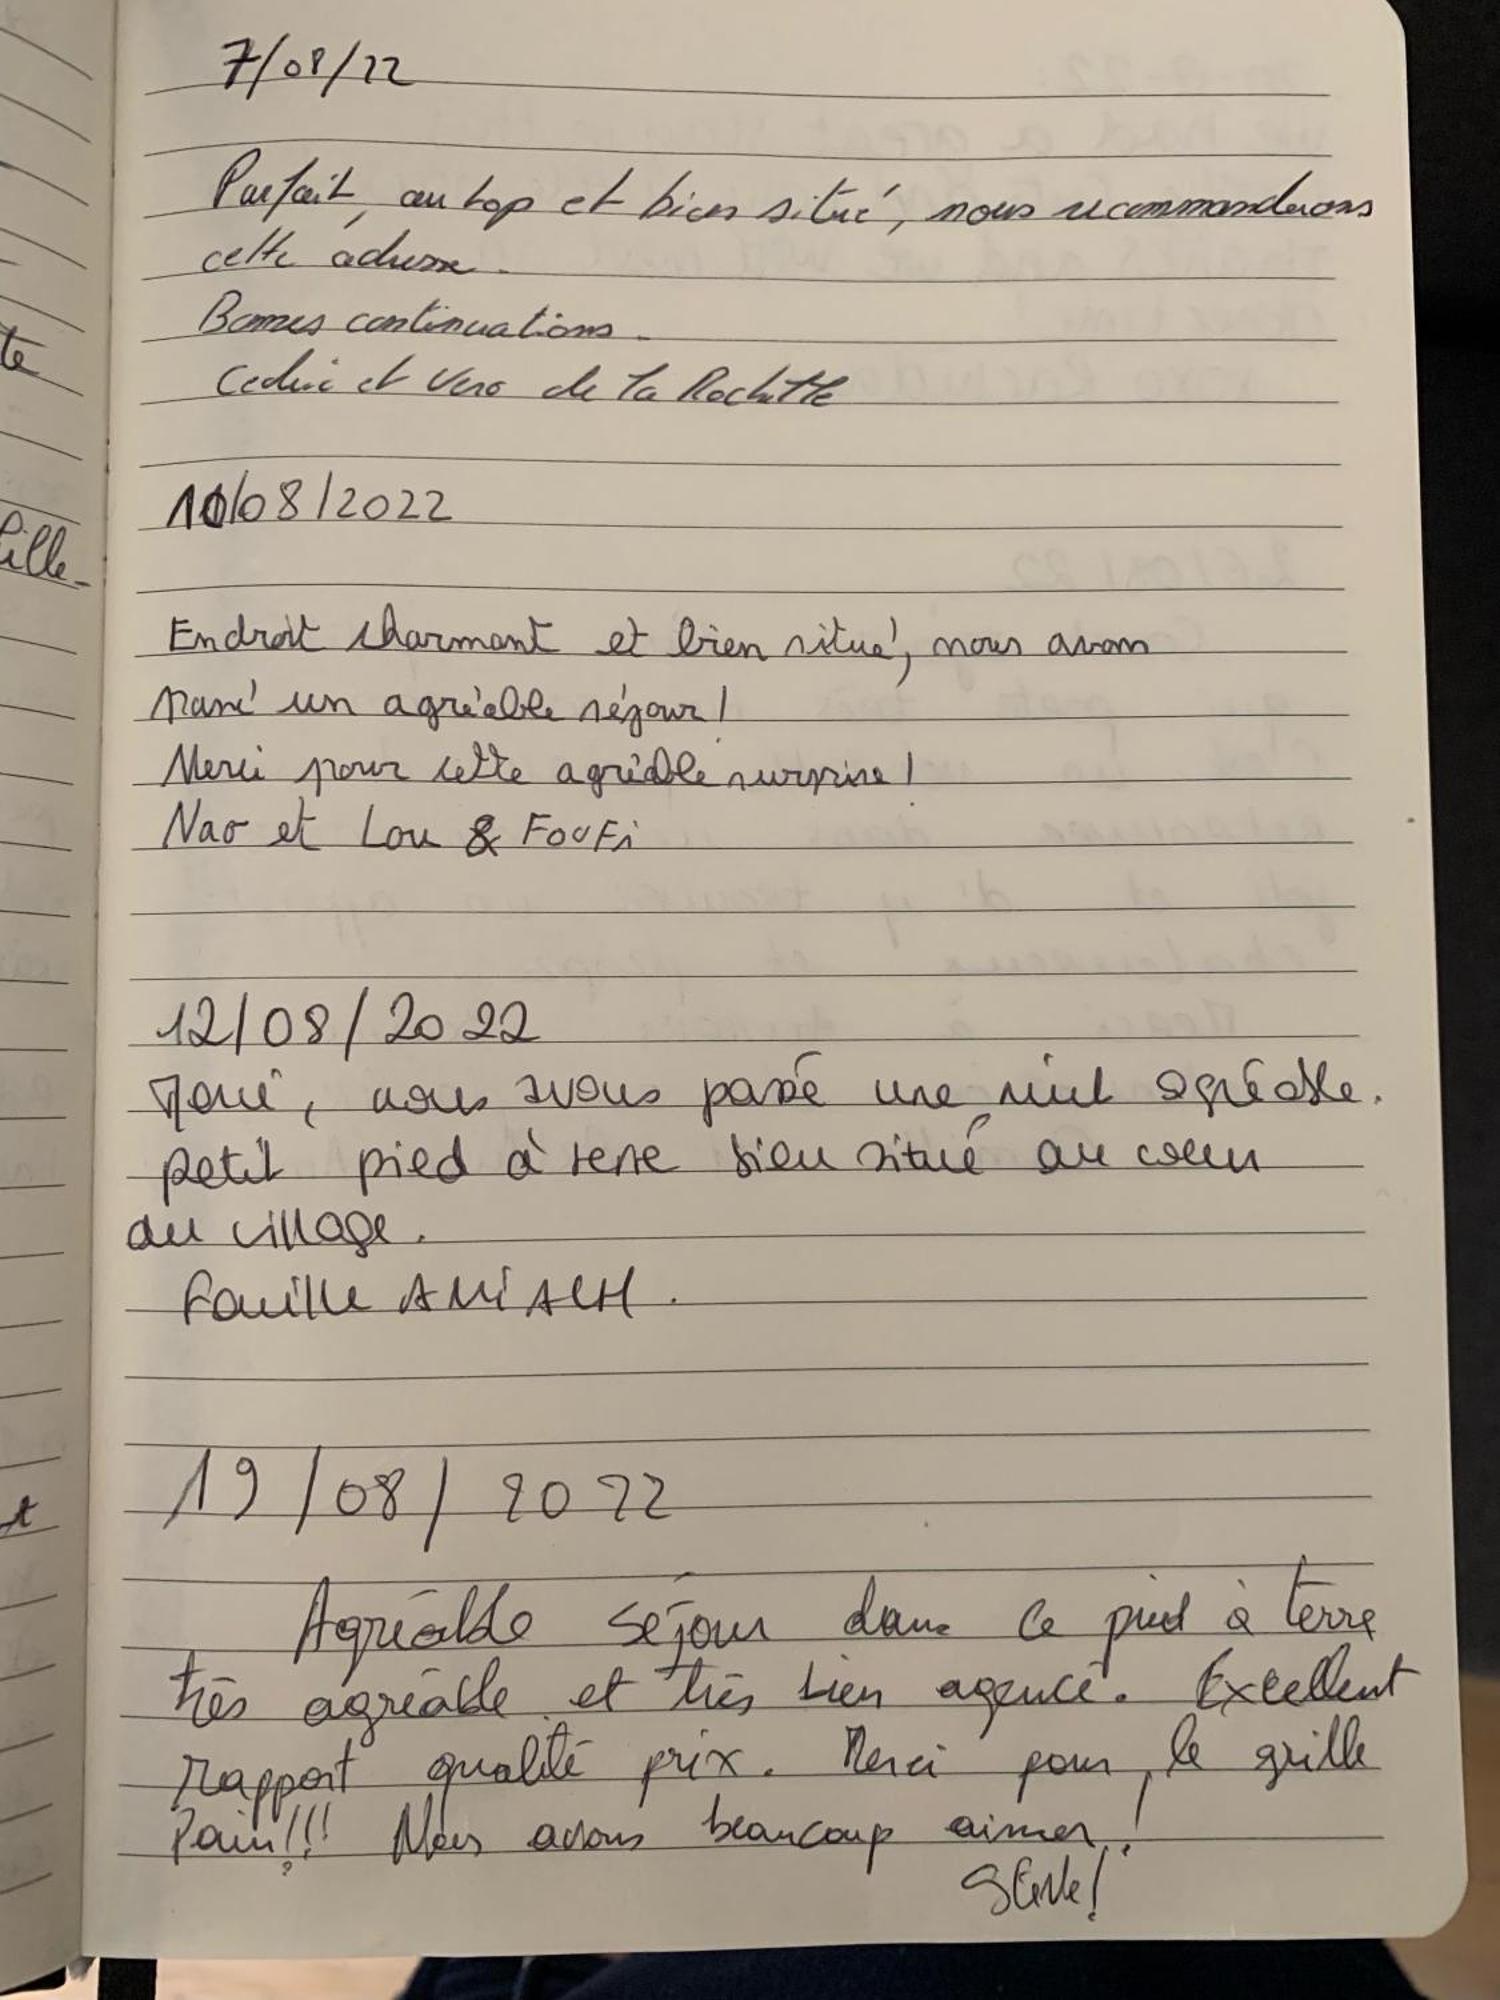 7/08/22
Parfait, au top et bien situé, nous recommanderons
cette adresse.
Bonnes continuations.
Cedric et Vero de la Rochette
10/08/2022
Endroit charmant et bien situé, nous avons
passé un agréable séjour!
Merci pour cette agréable surprise!
Nao et Lou & FouFi
12/08/2022
nous avons passé une nuit agréable.
petit pied à terre bien situé au coeur
du village.
Famille
19/08/2022
Agréable séjour dans ce pied à terre
très agréable et très bien agencé. Excellent
rapport qualité prix. Merci pour le grille
Pain!!! Nous avons beaucoup aimer!
te
fille.